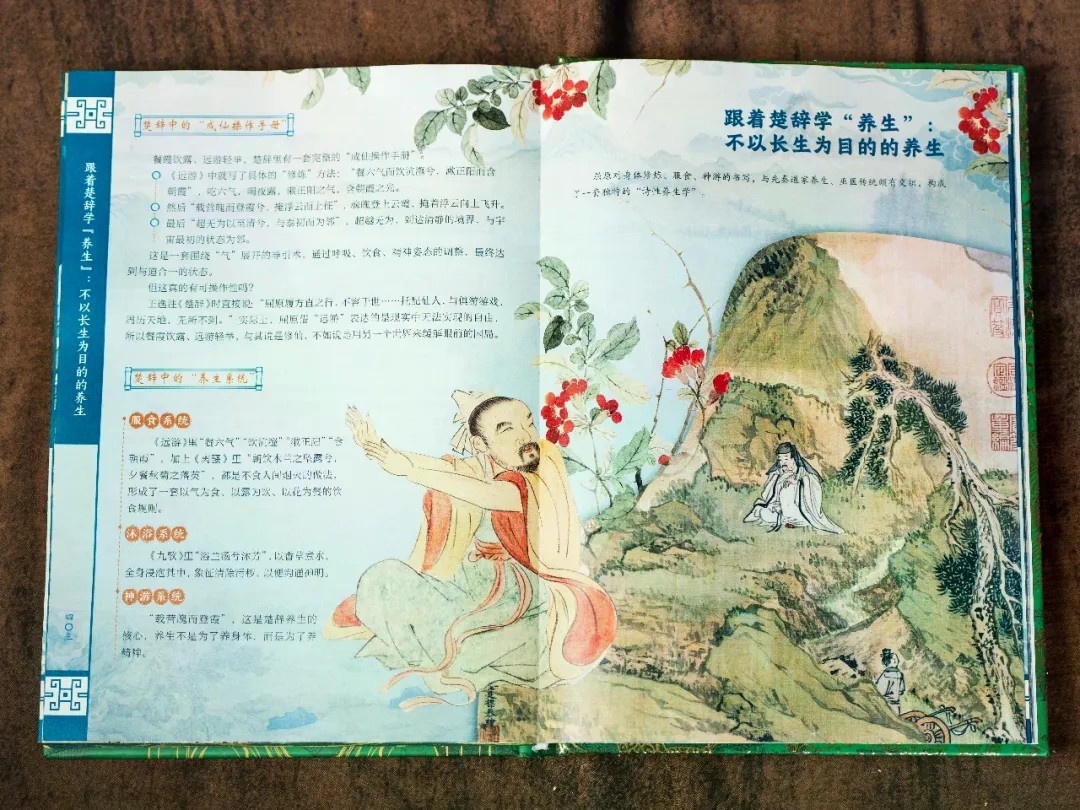 跟着楚辞学“养生”:
不以长生为目的的养生
屈原对身体修炼、服食、神游的书写,与先秦道家养生、巫医传统颇有交织,构成
了一套独特的“诗性养生学”。
楚辞中的“成仙操作手册”
餐霞饮露、远游轻举,楚辞里有一套完整的“成仙操作手册”。
《远游》中就写了具体的“修炼”方法:“餐六气而饮沆瀣兮,漱正阳而含
朝霞”,吃六气,喝夜露,漱正阳之气,含朝霞之光。
然后“载营魄而登霞兮,掩浮云而上征”,魂魄登上云霞,掩着浮云向上飞升。
最后“超无为以至清兮,与泰初而为邻”,超越无为,到达清静的境界,与宇
宙最初的状态为邻。
这是一套围绕“气”展开的导引术,通过呼吸、饮食、精神姿态的调整,最终达
到与道合一的状态。
但这真的有可操作性吗?
王逸注《楚辞》时直接说:“屈原履方直之行,不容于世……托配仙人,与俱游戏,
周历天地,无所不到。”实际上,屈原借“远游”表达的是现实中无法实现的自由,
所以餐霞饮露、远游轻举,与其说是修仙,不如说是用另一个世界来缓解眼前的困局。
楚辞中的“养生系统
服食系统
《远游》里“餐六气”“饮沆瀣”“漱正阳”“含
朝霞”,加上《离骚》里“朝饮木兰之坠露兮,
夕餐秋菊之落英”,都是不食人间烟火的做法,
形成了一套以气为食、以露为饮、以花为餐的饮
食规则。
沐浴系统
《九歌》里“浴兰汤兮沐芳”,以香草煮水,
全身浸泡其中,象征清除污秽,以便沟通神明。
神游系统
“载营魄而登霞”,这是楚辞养生的
核心,养生不是为了养身体,而是为了养
精神。
跟着楚辞学『养生』:不以长生为目的的养生
四〇三